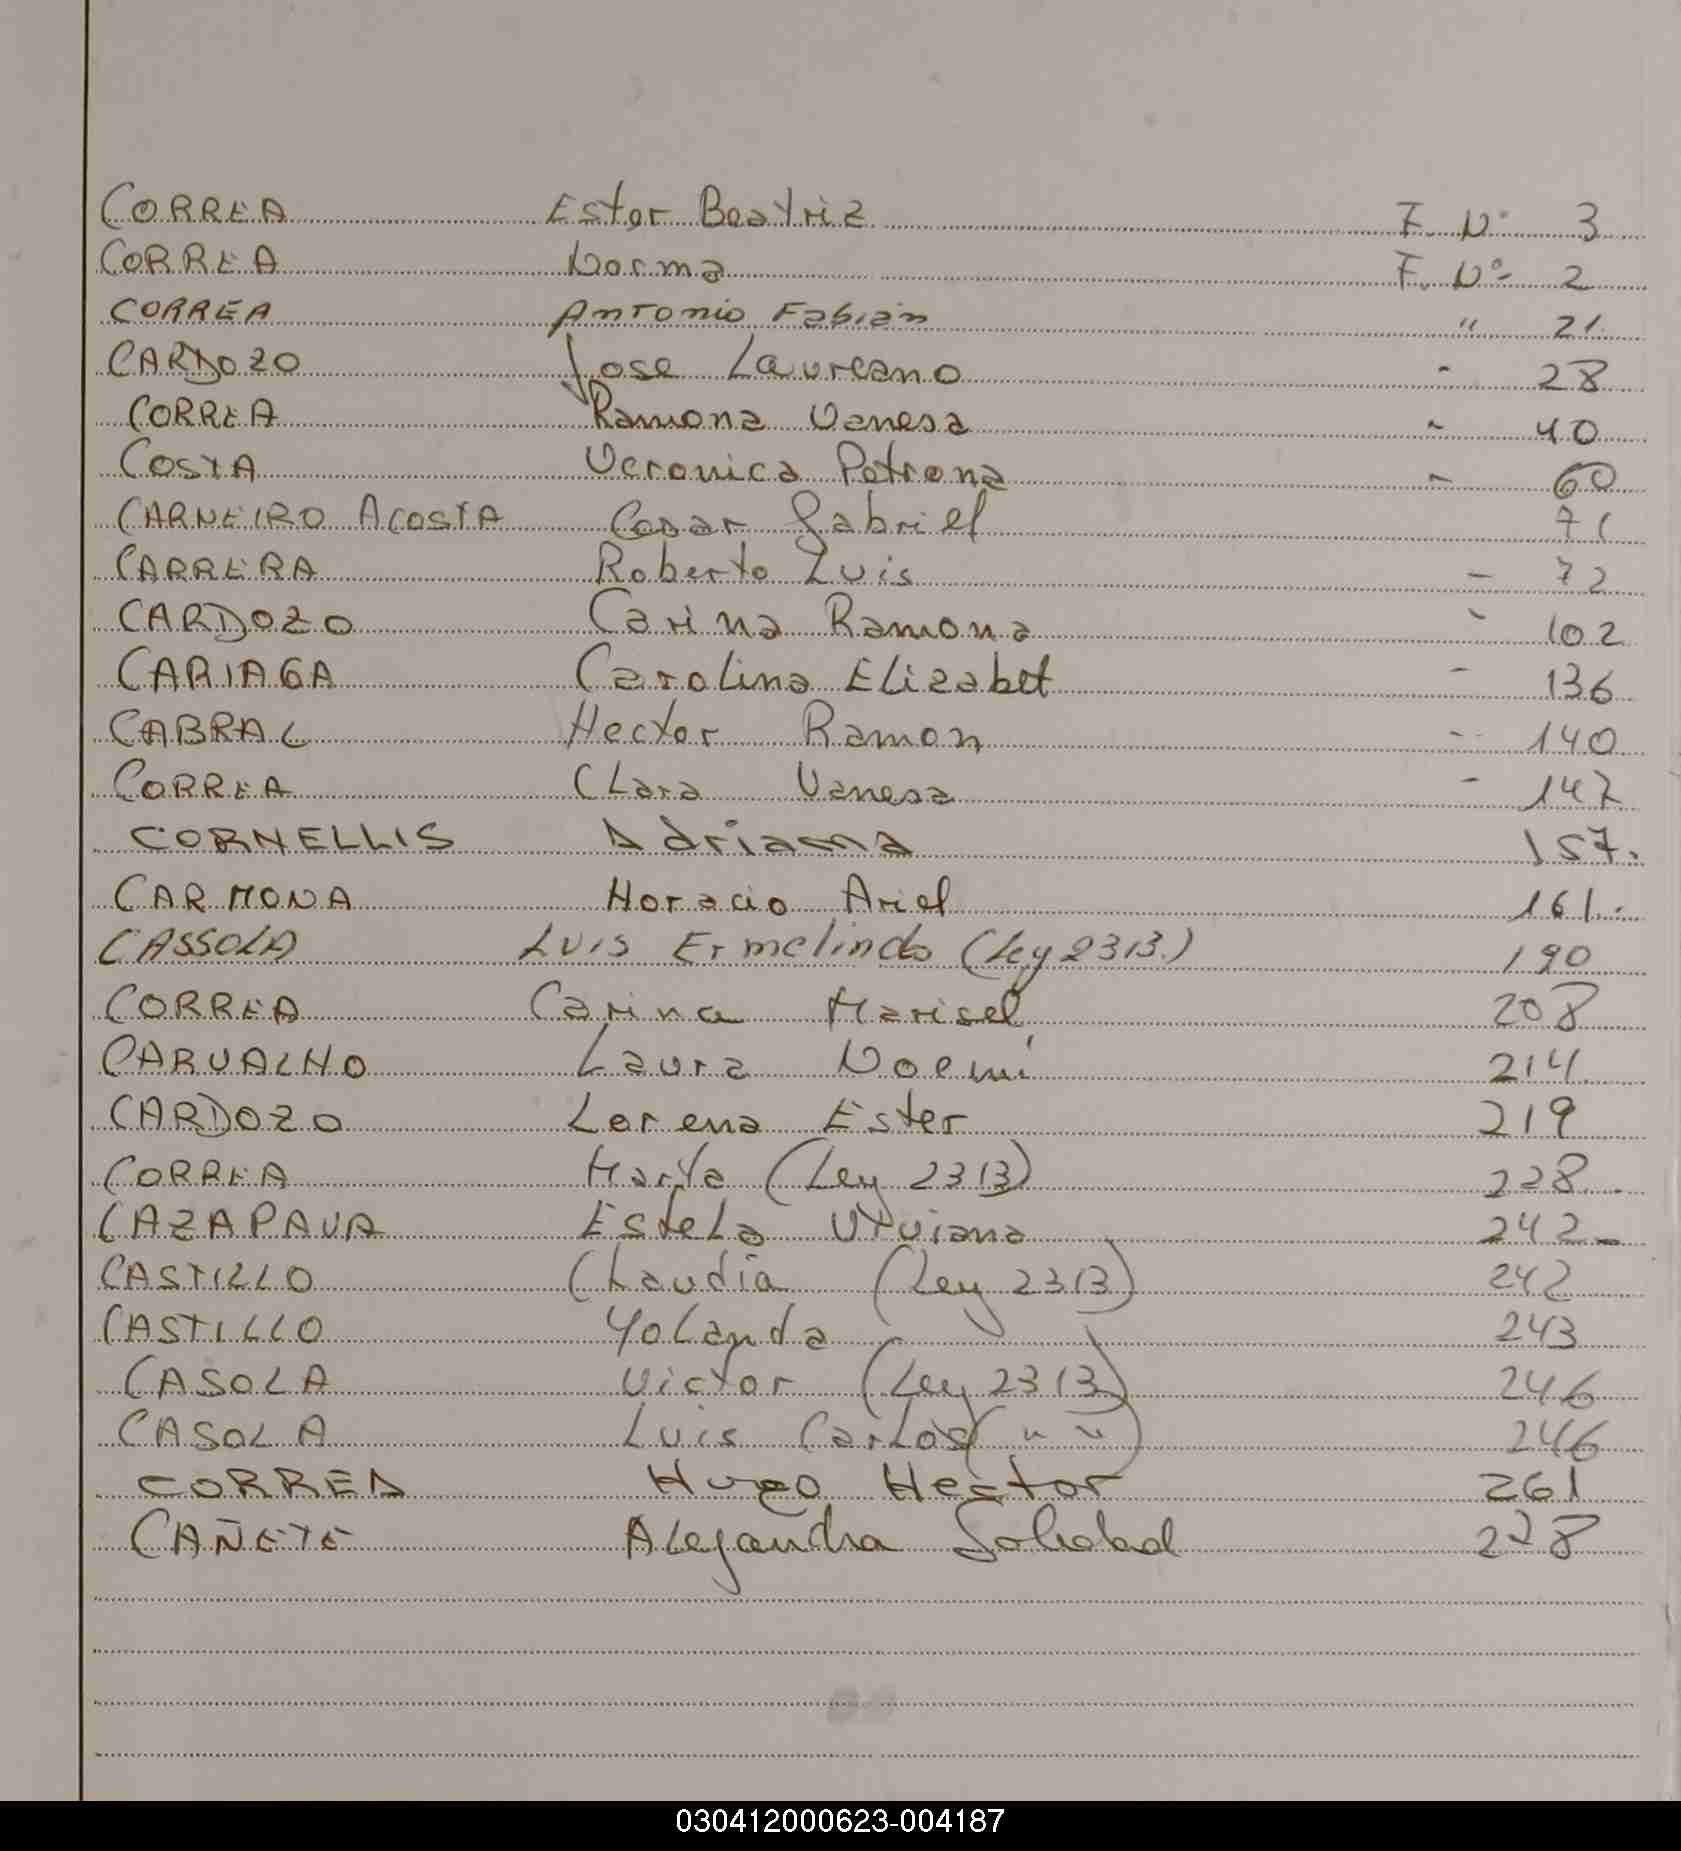 CORREA Ester Beatriz F. Nº 3
CORREA Norma F. Nº 2
CORREA Antonio Fabian " 21
CARDOZO Jose Laureano - 28
CORREA Ramona Vanesa - 40
COSTA Veronica Petrona - 60
CARNEIRO ACOSTA Cesar Gabriel 71
CARRERA Roberto Luis - 72
CARDOZO Carina Ramona - 102
CARIAGA Carolina Elizabet - 136
CABRAL Hector Ramon - 140
CORREA Clara Vanesa - 147
CORNELLIS Adriana 157.
CARMONA Horacio Ariel 161.
CASSOLA Luis Ermelindo (Ley 2313.) 190
CORREA Carina Marisel 208
CARVALHO Laura Noemí 214
CARDOZO Lorena Ester 219
CORREA Marta (Ley 2313) 228.
CAZAPAVA Estela Viviana 242-
CASTILLO Claudia (Ley 2313) 242
CASTILLO Yolanda 243
CASOLA Victor (Ley 2313) 246
CASOLA Luis Carlos (" ") 246
CORREA Hugo Hector 261
CAÑETE Alejandra Soledad 228
030412000623-004187